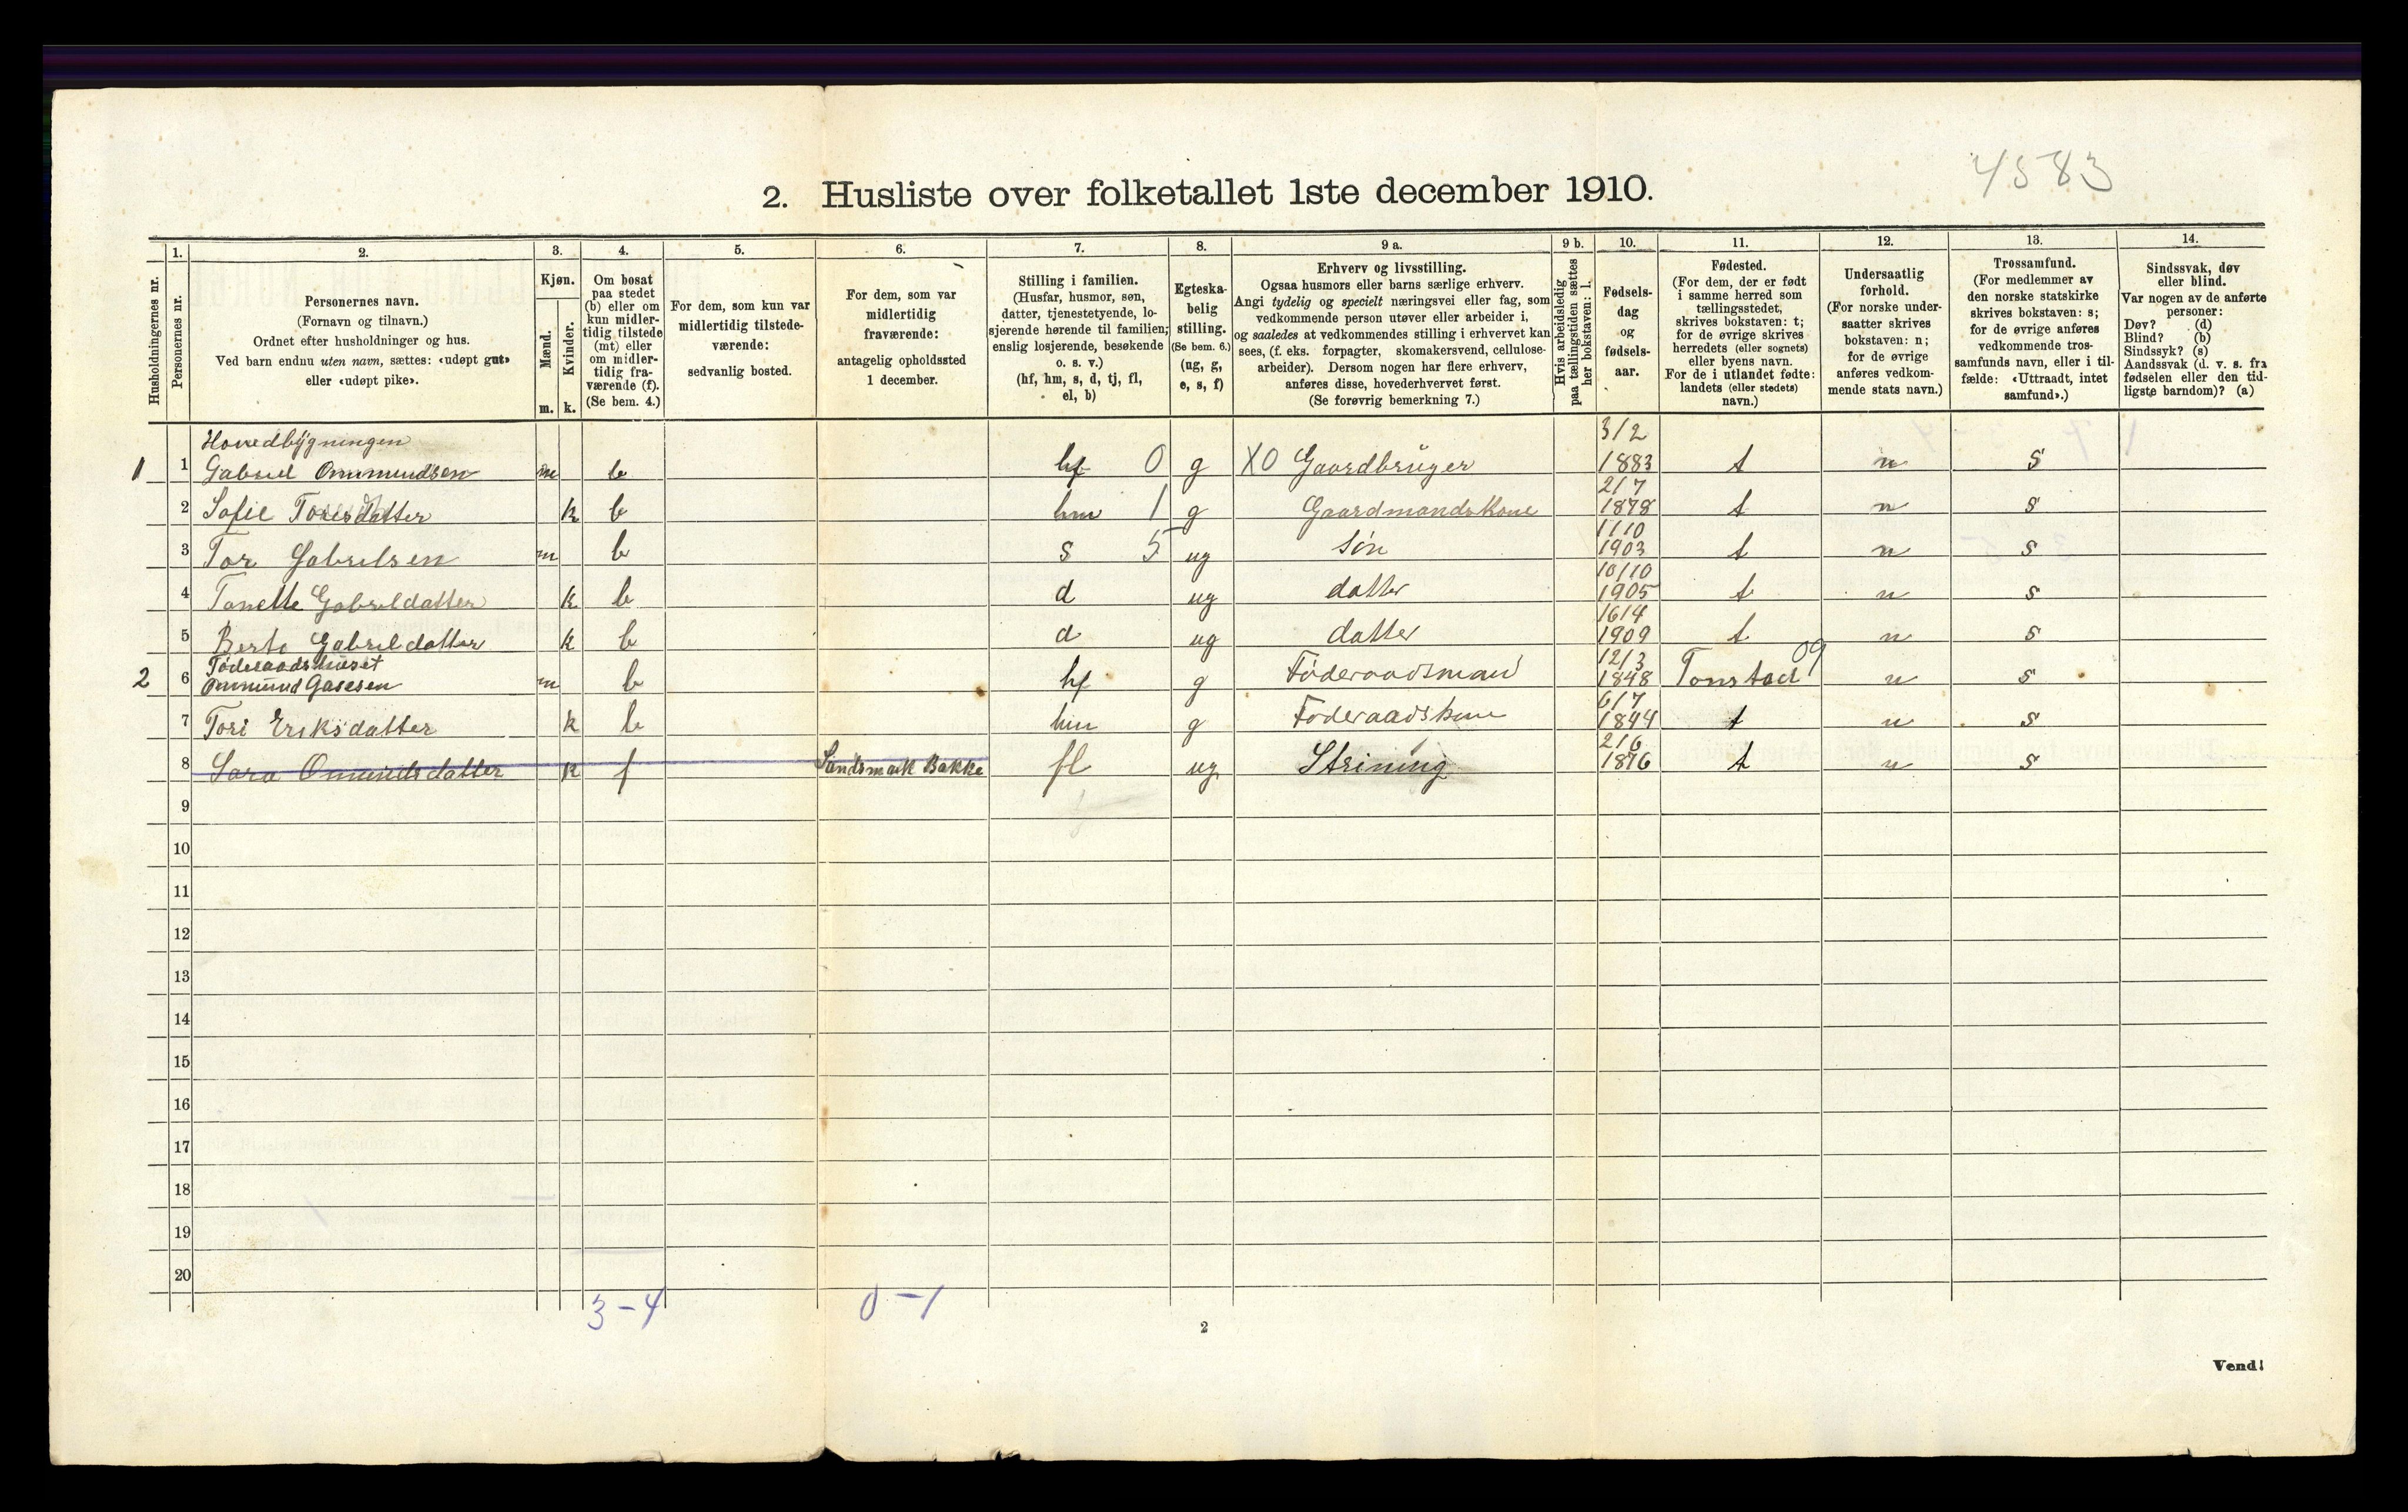 4583
2. Husliste over folketallet 1ste december 1910.
Husholdningernes nr.
1.
Personernes nr.
2.
Personernes navn.
(Fornavn og tilnavn.)
Ordnet efter husholdninger og hus.
Ved barn endnu uten navn, sættes: «udøpt gut»
eller «udøpt pike».
3.
Kjøn.
Mænd.
Kvinder.
m. k.
4.
Om bosat
paa stedet
(b) eller om
kun midler-
tidig tilstede
(mt) eller
om midler-
tidig fra-
værende (f).
(Se bem. 4.)
5.
For dem, som kun var
midlertidig tilstede-
værende:
sedvanlig bosted.
6.
For dem, som var
midlertidig
fraværende:
antagelig opholdssted
1 december.
7.
Stilling i familien.
(Husfar, husmor, søn,
datter, tjenestetyende, lo-
sjerende hørende til familien,
enslig losjerende, besøkende
o. s. v.)
(hf, hm, s, d, tj, fl,
el, b)
8.
Egteska-
belig
stilling.
(Se bem. 6.)
(ug, g,
e, s, f)
9 a.
Erhverv og livsstilling.
Ogsaa husmors eller barns særlige erhverv.
Angi tydelig og specielt næringsvei eller fag, som
vedkommende person utøver eller arbeider i,
og saaledes at vedkommendes stilling i erhvervet kan
sees, (f. eks. forpagter, skomakersvend, cellulose-
arbeider). Dersom nogen har flere erhverv,
anføres disse, hovederhvervet først.
(Se forøvrig bemerkning 7.)
9 b.
Hvis arbeidsledig
paa tællingstiden sættes
her bokstaven: l.
10.
Fødsels-
dag
og
fødsels-
aar.
11.
Fødested.
(For dem, der er født
i samme herred som
tællingsstedet,
skrives bokstaven: t;
for de øvrige skrives
herredets (eller sognets)
eller byens navn.
For de i utlandet fødte:
landets (eller stedets)
navn.)
12.
Undersaatlig
forhold.
(For norske under-
saatter skrives
bokstaven: n;
for de øvrige
anføres vedkom-
mende stats navn.)
13.
Trossamfund.
(For medlemmer av
den norske statskirke
skrives bokstaven: s;
for de øvrige anføres
vedkommende tros-
samfunds navn, eller i til-
fælde: «Uttraadt, intet
samfund».)
14.
Sindssvak, døv
eller blind.
Var nogen av de anførte
personer:
Døv? (d)
Blind? (b)
Sindssyk? (s)
Aandssvak (d. v. s. fra
fødselen eller den tid-
ligste barndom)? (a)
Hovedbygningen
1 1 Gabriel Ommundsen m b hf 0 g X0 Gaardbruger 3/2 1883 t n s
2 Sofie Toresdatter k b hm 1 g Gaardmandskone 2/7 1878 t n s
3 Tor Gabrielsen m b s 5 ug Søn 1/10 1903 t n s
4 Tonette Gabrieldatter k b d ug datter 10/10 1905 t n s
5 Berte Gabrieldatter k b d ug datter 16/4 1909 t n s
Føderaadshuset
2 6 Ommund Gasesen m b hf g Føderaadsmand 12/3 1848 Tonstad 09 n s
7 Tori Eriksdatter k b hm g Føderaadskone 6/7 1844 t n s
8 Sara Omundsdatter k f Sandsmark Bakke fl ug Strining 2/6 1876 t n s
9
10
11
12
13
14
15
16
17
18
19
20
3-4 0-1
2
Vend!